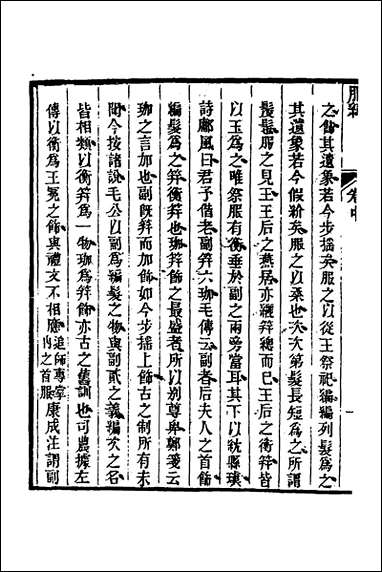 服釋
卷中
之飾其遺象若今步搖矣服之以從王祭祀編編列髮爲之
其遺象若今假紒矣服之以桑也次次第髮長短爲之所謂
髲髢服之見王王后之燕居亦纚筓總而已王后之衡筓皆
以玉爲之唯祭服有衡垂於副之兩旁當耳其下以紞縣瑱
詩鄘風曰君子偕老副筓六珈毛傳云副者后夫人之首飾
編髮爲之筓衡筓也珈筓飾之最盛者所以别尊卑鄭箋云
珈之言加也副旣筓而加飾如今步搖上飾古之制所有未
聞今按諸說毛公以副爲編髮之物與副貳之義編次之名
皆相類以衡筓爲一物珈爲筓飾亦古之舊訓也司農據左
傳以衡爲王冕之飾與禮文不相應追師專掌内之首服康成注謂副